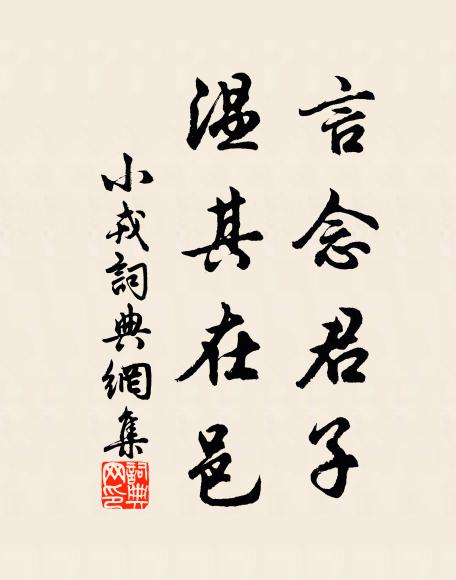 言念君子
温其在邑
小戎詞典網集
詞典網印